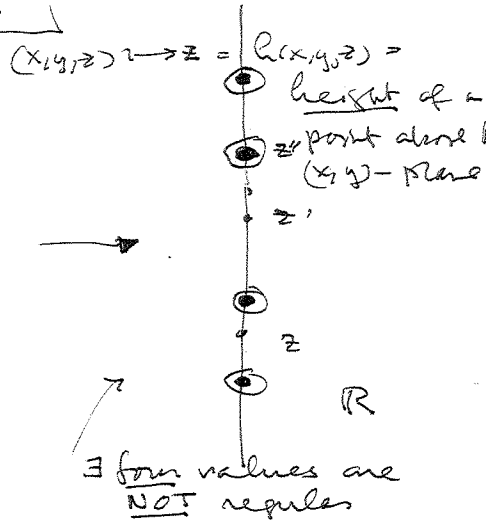 (x,y,z) ⟼ z = h(x,y,z) =
height of a
point above
(x,y)-plane
z''
z'
z
ℝ
∃ four values are
NOT regular